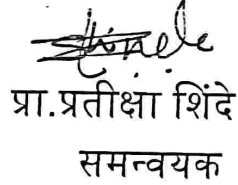 प्रा.प्रतीक्षा शिंदे
समन्वयक